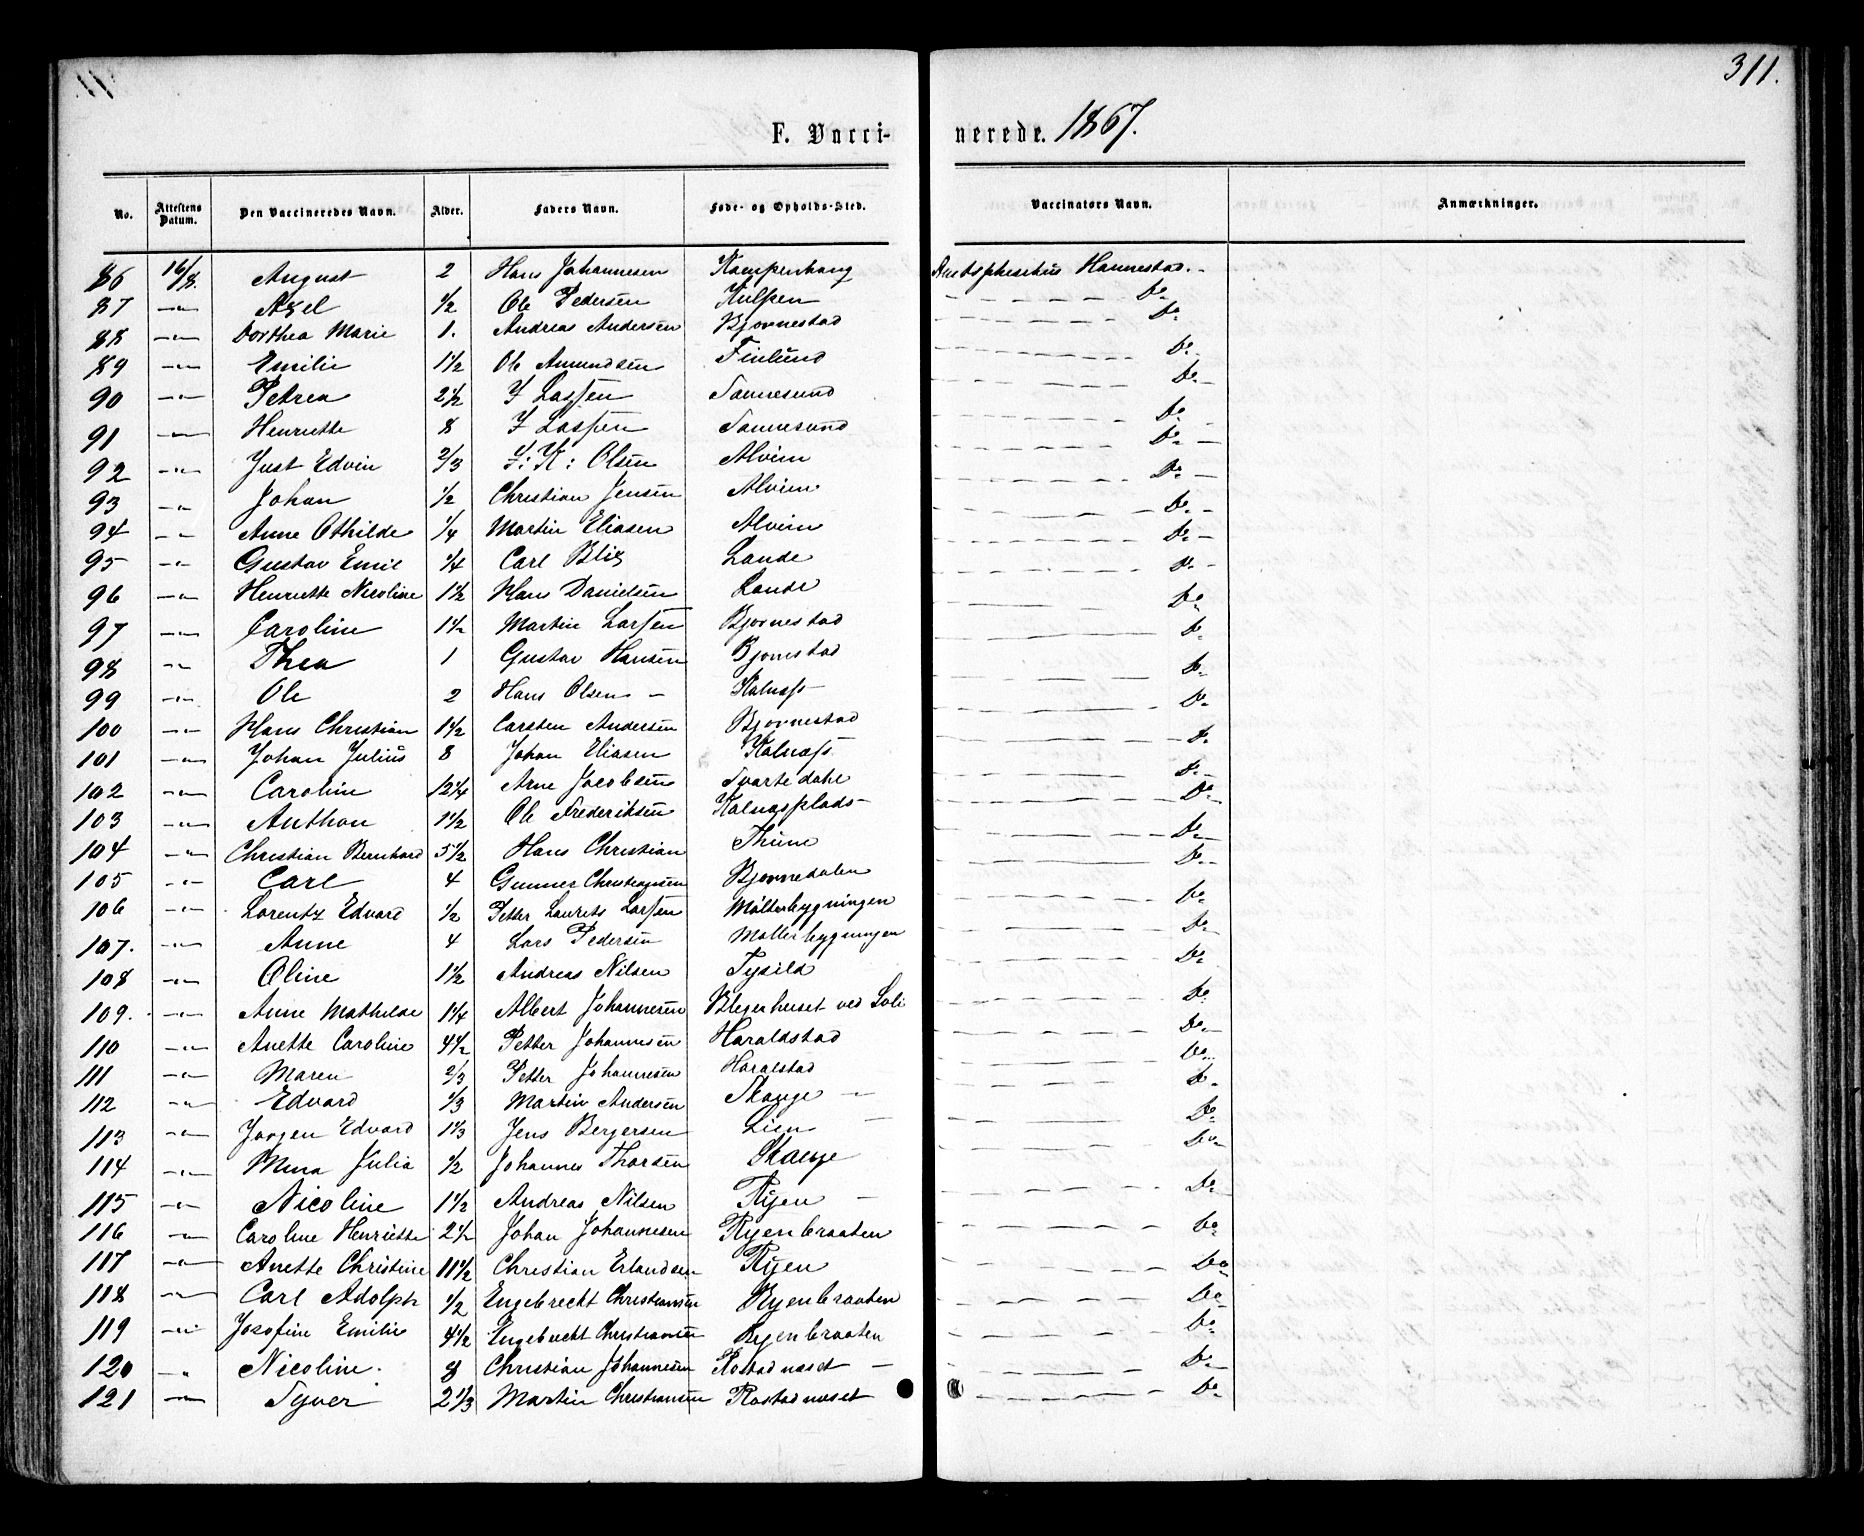 311.
F. Vacci- nerede. 1867.
No. Attestens Datum. Den Vaccineredes Navn. Alder. Faders Navn. Føde- og Opholds-Sted. Vaccinators Navn. Anmærkninger.
86 16/8. August 2 Hans Johannesen Kampenhaug Hannestad. -
87 -"- Axel 1/2 Ole Pedersen Kulpen Do
88 -"- Dorthea Marie 1. Andreas Andersen Bjørnestad Do
89 -"- Emilie 1 1/2 Ole Amundsen Finlund Do
90 -"- Petrea 2 1/2 I Lassen Tannesund Do
91 -"- Henriette 8 I Lassen Tannesund Do
92 -"- Just Edvin 2/3 I: K: Olsen Alvim Do
93 -"- Johan 1/2 Christian Jensen Alvim Do
94 -"- Anne Othilde 1/4 Martin Eliasen Alvim Do
95 -"- Gustav Emil 1/4 Carl Blix Lande Do
96 -"- Henriette Nicoline 1 1/2 Hans Danielsen Lande Do
97 -"- Caroline 1 1/2 Martin Larsen Bjørnestad Do
98 -"- Thea 1 Gustav Hansen Bjørnestad Do
99 -"- Ole 2 Hans Olsen - Kalnæs Do
100 -"- Hans Christian 1 1/2 Carsten Andersen Bjørnestad Do
101 -"- Johan Julius 8 Johan Eliasen Kalnæs Do
102 -"- Caroline 12 1/4 Arne Jacobsen Svartedahl Do
103 -"- Anthon 1 1/2 Ole Frederiksen Kalnæsplads - Do
104 -"- Christian Bernhard 5 1/2 Hans Christian Thune Do
105 -"- Carl 4 Gunner Christiansen Bjørnedalen Do
106 -"- Lorentz Edvard 1/2 Petter Laurets Larsen Møllerbygningen Do
107. -"- Anne 4 Lars Pedersen Møllerbygningen Do
108 -"- Oline 1 1/2 Andreas Nilsen Tysild Do
109. -"- Anne Mathilde 1 1/4 Albert Johannesen Blegerhuset ved Soli Do
110 -"- Anette Caroline 4 1/2 Petter Johannesen Haraldstad Do
111 -"- Maren 2/3 Petter Johannesen Haralstad Do
112 -"- Edvard 1/3 Martin Andersen Skauge - Do
113 -"- Jørgen Edvard 1 1/3 Jens Bergersen Lien - Do
114 -"- Mina Julia 1/2 Johannes Thorsen Skauge Do
115 -"- Nicoline 1 1/2 Andreas Nilsen Ryen - Do
116 -"- Caroline Henriette 2 1/2 Johan Johannesen Ryenbraaten Do
117 -"- Anette Christine 11 1/2 Christian Erlandsen Ryen Do
118 -"- Carl Adolph 1/2 Engebrecht Christiansen Ryenbraaten Do
119 -"- Josefine Emilie 4 1/2 Engebrecht Christiansen Ryenbraaten Do
120 -"- Nicoline. 8 Christian Johannesen Rostadnæset - Do
121 -"- Syver 2 1/3 Martin Christiansen Rostadnæset Do